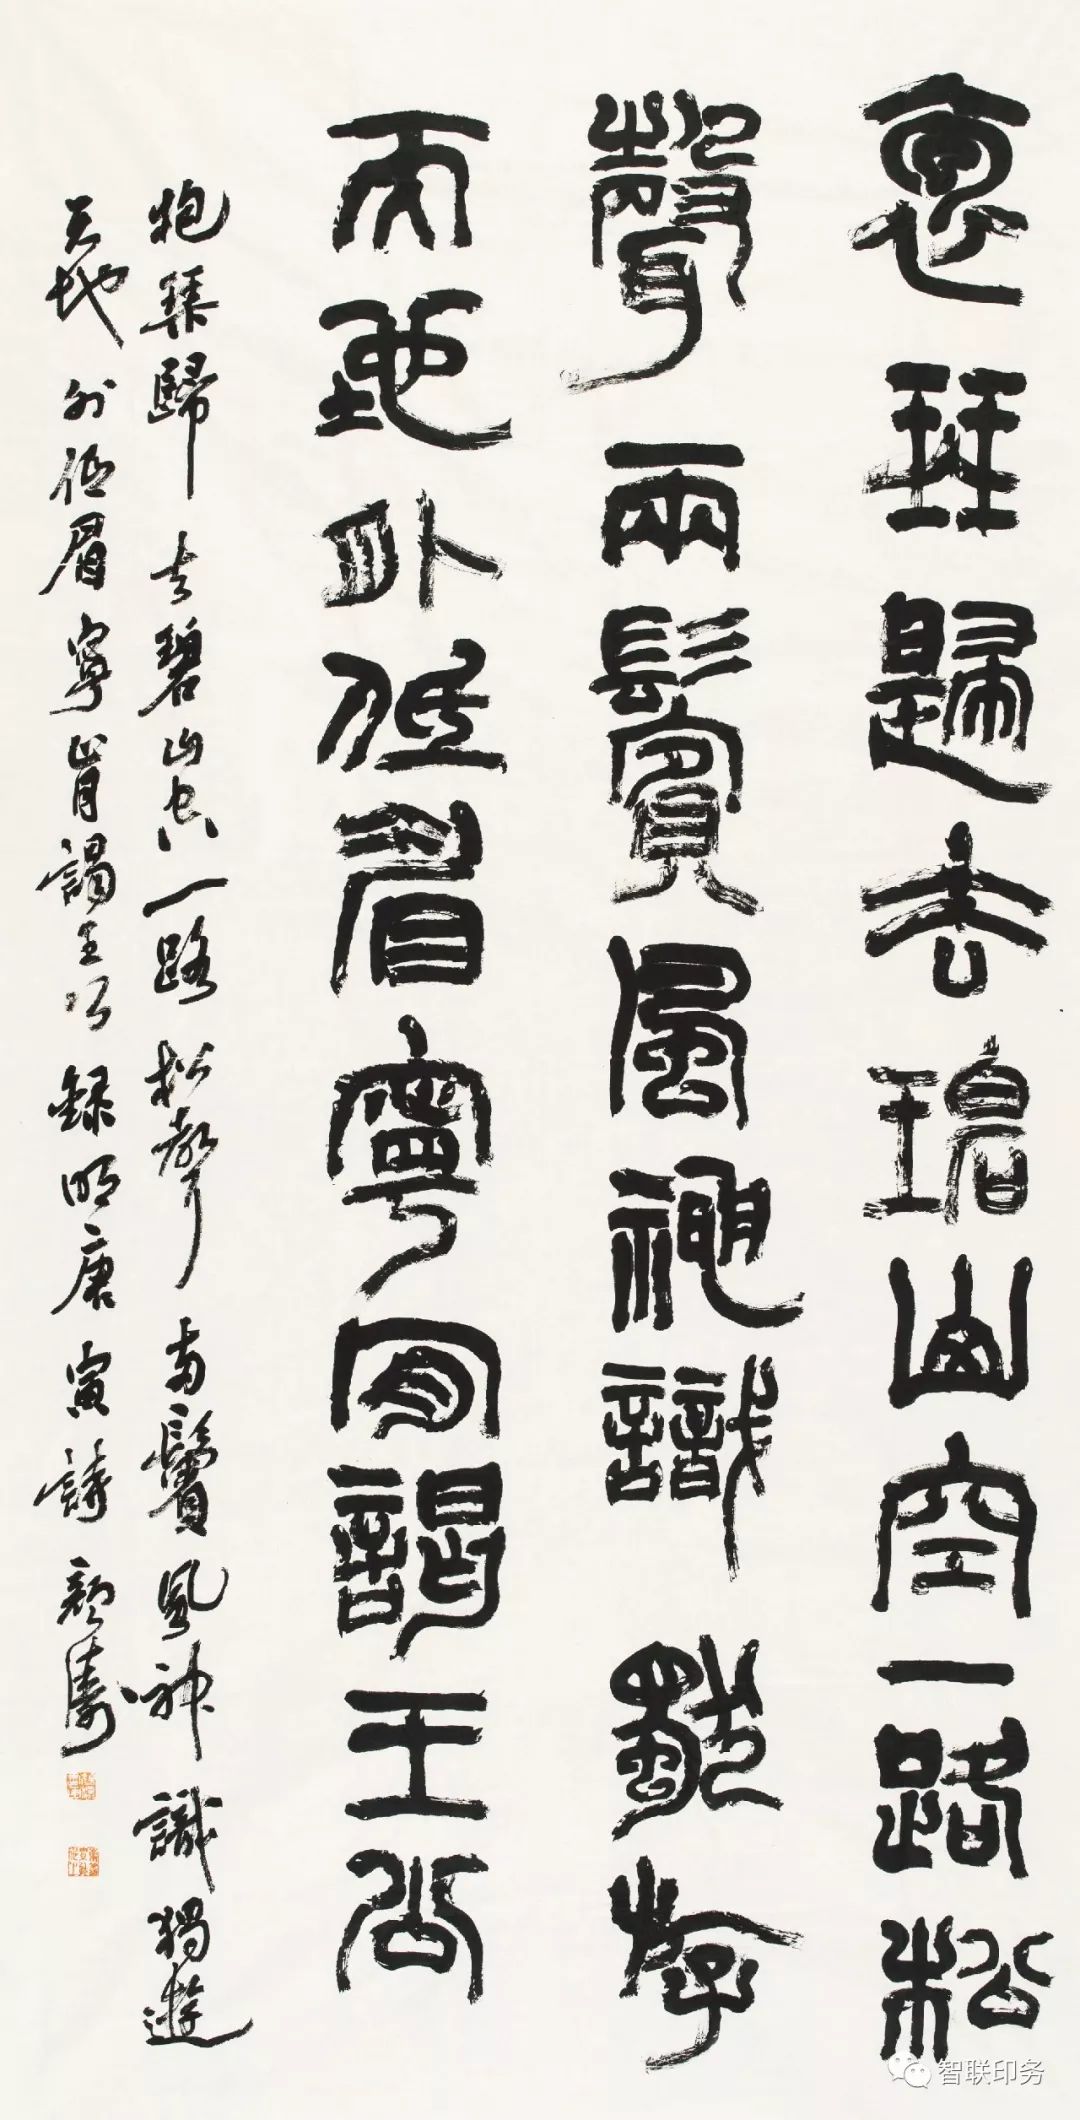 裹琹歸去碧山空一路松
聲兩鬢風神識獨斿
天地外低眉寧肎謁王公
抱琹歸去碧山空一路松聲兩鬢風神識獨遊
天地外低眉寧肯謁王公 錄明唐寅詩 顏濤
智联印务